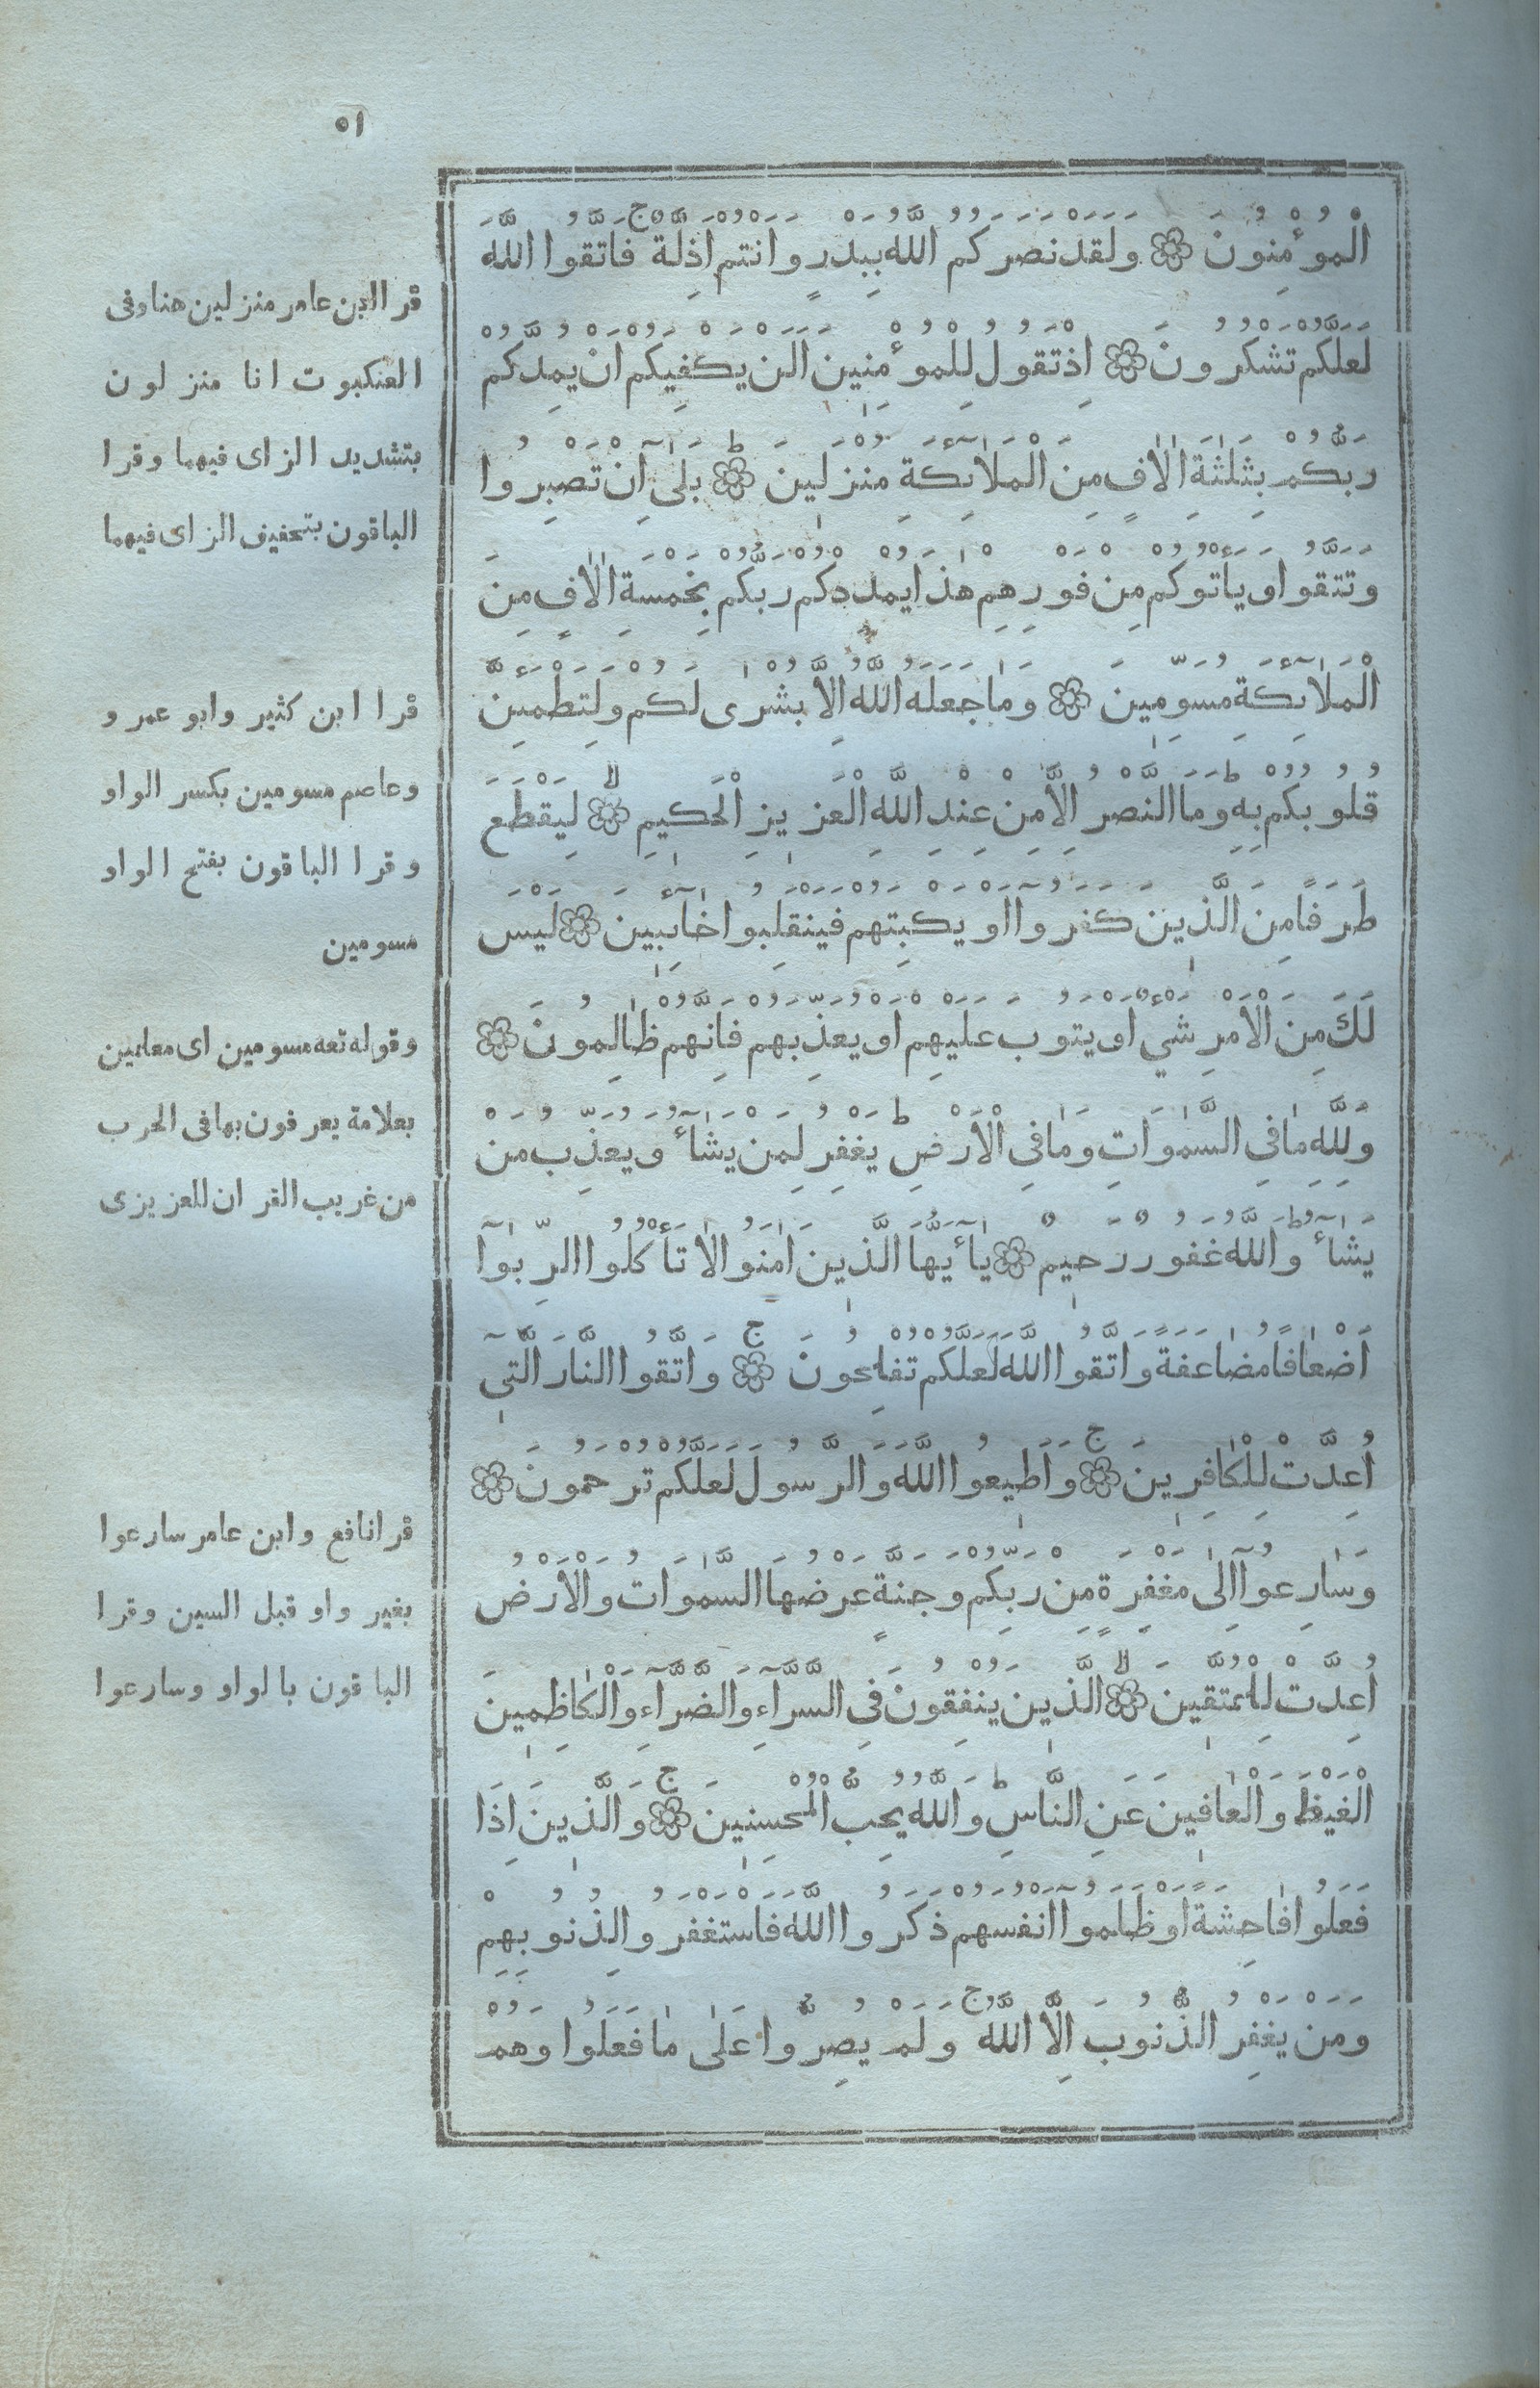 ٥١
الْمُؤْمِنُونَ ۞ وَلَقَدْ نَصَرَكُمُ اللّٰهُ بِبَدْرٍ وَاَنْتُمْ اَذِلَّةٌ ج فَاتَّقُوا اللّٰهَ
لَعَلَّكُمْ تَشْكُرُونَ ۞ اِذْ تَقُولُ لِلْمُؤْمِنِينَ اَلَنْ يَكْفِيَكُمْ اَنْ يُمِدَّكُمْ
رَبُّكُمْ بِثَلٰثَةِ اٰلَافٍ مِنَ الْمَلَآئِكَةِ مُنْزَلِينَ ط ۞ بَلٰىٓ اِنْ تَصْبِرُوا
وَتَتَّقُوا وَيَأْتُوكُمْ مِنْ فَوْرِهِمْ هٰذَا يُمْدِدْكُمْ رَبُّكُمْ بِخَمْسَةِ اٰلَافٍ مِنَ
الْمَلَآئِكَةِ مُسَوِّمِينَ ۞ وَمَا جَعَلَهُ اللّٰهُ اِلَّا بُشْرٰى لَكُمْ وَلِتَطْمَئِنَّ
قُلُوبُكُمْ بِهِ ط وَمَا النَّصْرُ اِلَّا مِنْ عِنْدِ اللّٰهِ الْعَزِيزِ الْحَكِيمِ لا ۞ لِيَقْطَعَ
طَرَفًا مِنَ الَّذِينَ كَفَرُوآ اَوْ يَكْبِتَهُمْ فَيَنْقَلِبُوا خَآئِبِينَ ۞ لَيْسَ
لَكَ مِنَ الْاَمْرِ شَيْءٌ اَوْ يَتُوبَ عَلَيْهِمْ اَوْ يُعَذِّبَهُمْ فَاِنَّهُمْ ظَالِمُونَ ۞
وَلِلّٰهِ مَا فِي السَّمٰوَاتِ وَمَا فِي الْاَرْضِ ط يَغْفِرُ لِمَنْ يَشَآءُ وَيُعَذِّبُ مَنْ
يَشَآءُ ط وَاللّٰهُ غَفُورٌ رَحِيمٌ ۞ يَآ أَيُّهَا الَّذِينَ اٰمَنُوا لَا تَأْكُلُوا الرِّبٰوآ
اَضْعَافًا مُضَاعَفَةً وَاتَّقُوا اللّٰهَ لَعَلَّكُمْ تُفْلِحُونَ ج ۞ وَاتَّقُوا النَّارَ الَّتِيٓ
اُعِدَّتْ لِلْكَافِرِينَ ج ۞ وَاَطِيعُوا اللّٰهَ وَالرَّسُولَ لَعَلَّكُمْ تُرْحَمُونَ ۞
وَسَارِعُوآ اِلٰى مَغْفِرَةٍ مِنْ رَبِّكُمْ وَجَنَّةٍ عَرْضُهَا السَّمٰوَات وَالْاَرْضُ
اُعِدَّتْ لِلْمُتَّقِينَ لا ۞ الَّذِينَ يُنْفِقُونَ فِي السَّرَّآءِ وَالضَّرَّآءِ وَالْكَاظِمِينَ
الْغَيْظَ وَالْعَافِينَ عَنِ النَّاسِ ط وَاللّٰهُ يُحِبُّ الْمُحْسِنِينَ ج ۞ وَالَّذِينَ اِذَا
فَعَلُوا فَاحِشَةً اَوْ ظَلَمُوآ اَنْفُسَهُمْ ذَكَرُوا اللّٰهَ فَاسْتَغْفَرُوا لِذُنُوبِهِمْ
وَمَنْ يَغْفِرُ الذُّنُوبَ اِلَّا اللّٰهُ ج وَلَمْ يُصِرُّوا عَلٰى مَا فَعَلُوا وَهُمْ
قرا ابن عامر منزلين هنا وفى
العنكبوت انا منزلون
بتشديد الزاى فيهما وقرا
الباقون بتخفيف الزاى فيهما
قرا ابن كثير وابو عمرو
وعاصم مسومين بكسر الواو
وقرا الباقون بفتح الواو
مسومين
وقوله تعه مسومين اى معلمين
بعلامة يعرفون بها فى الحرب
من غريب القران للعزيزى
قرا نافع وابن عامر سارعوا
بغير واو قبل السين وقرا
الباقون بالواو وسارعوا